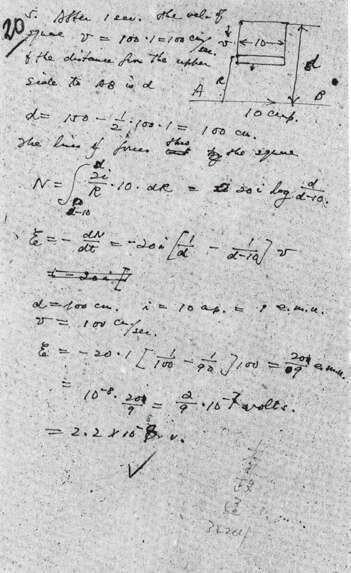 20
5. After 1 sec. the vel. of
square v = 100 · 1 = 100 cm/sec.
& the distance from the upper
side to AB is d
v 10 d
R
A B
10 amp.
d = 150 − 1/2 · 100 · 1 = 100 cm.
The lines of forces thro the square
N = ∫ d-10 d 2i/R · 10 · dR = 20 i log d/d-10
E = − dN/dt = −20 i [ 1/d − 1/d-10 ] v
d = 100 cm. i = 10 amp. = 1 e.m.u.
v = 100 cm/sec.
E = −20 · 1 [ 1/100 − 1/90 ] 100 = 20/9 e.m.u.
= 10^-8 · 20/9 = 2/9 · 10^-7 volts.
= 2.2 × 10^-8 v.